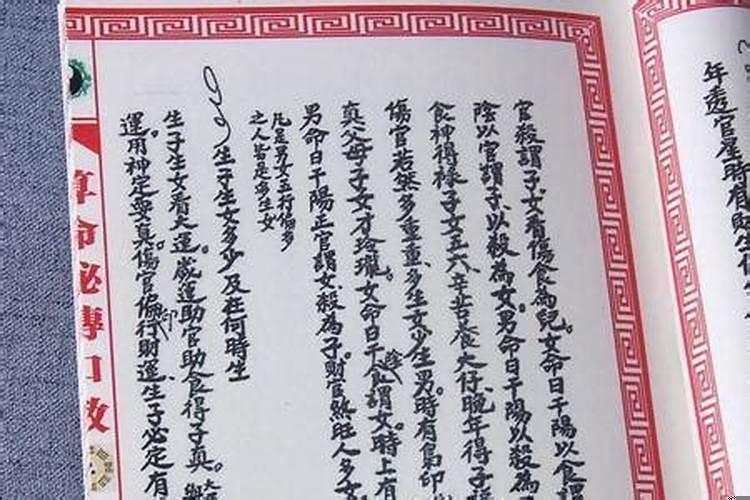 年透官星時有財生
官殺謂子女看傷食為兒。女命日干陽以食謂
陰以官謂子、以殺為女。男命日干陽以殺為
食神得祿子女五六辛苦養大仔。晚年得子
傷官若煞多重重、多生女少生男。時有梟印
真父母子女才玲瓏。女命日干陰食謂女。時上有
男命日干陽正官謂女、殺為子。財官煞旺人多女
凡是男女五行偏多
之人皆是多生女
生子生女多少及在何時生
生子生女看大運。歲運助官助食得子真。
運用神定要真。傷官偏印行財運、生子必定有
算命秘傳口